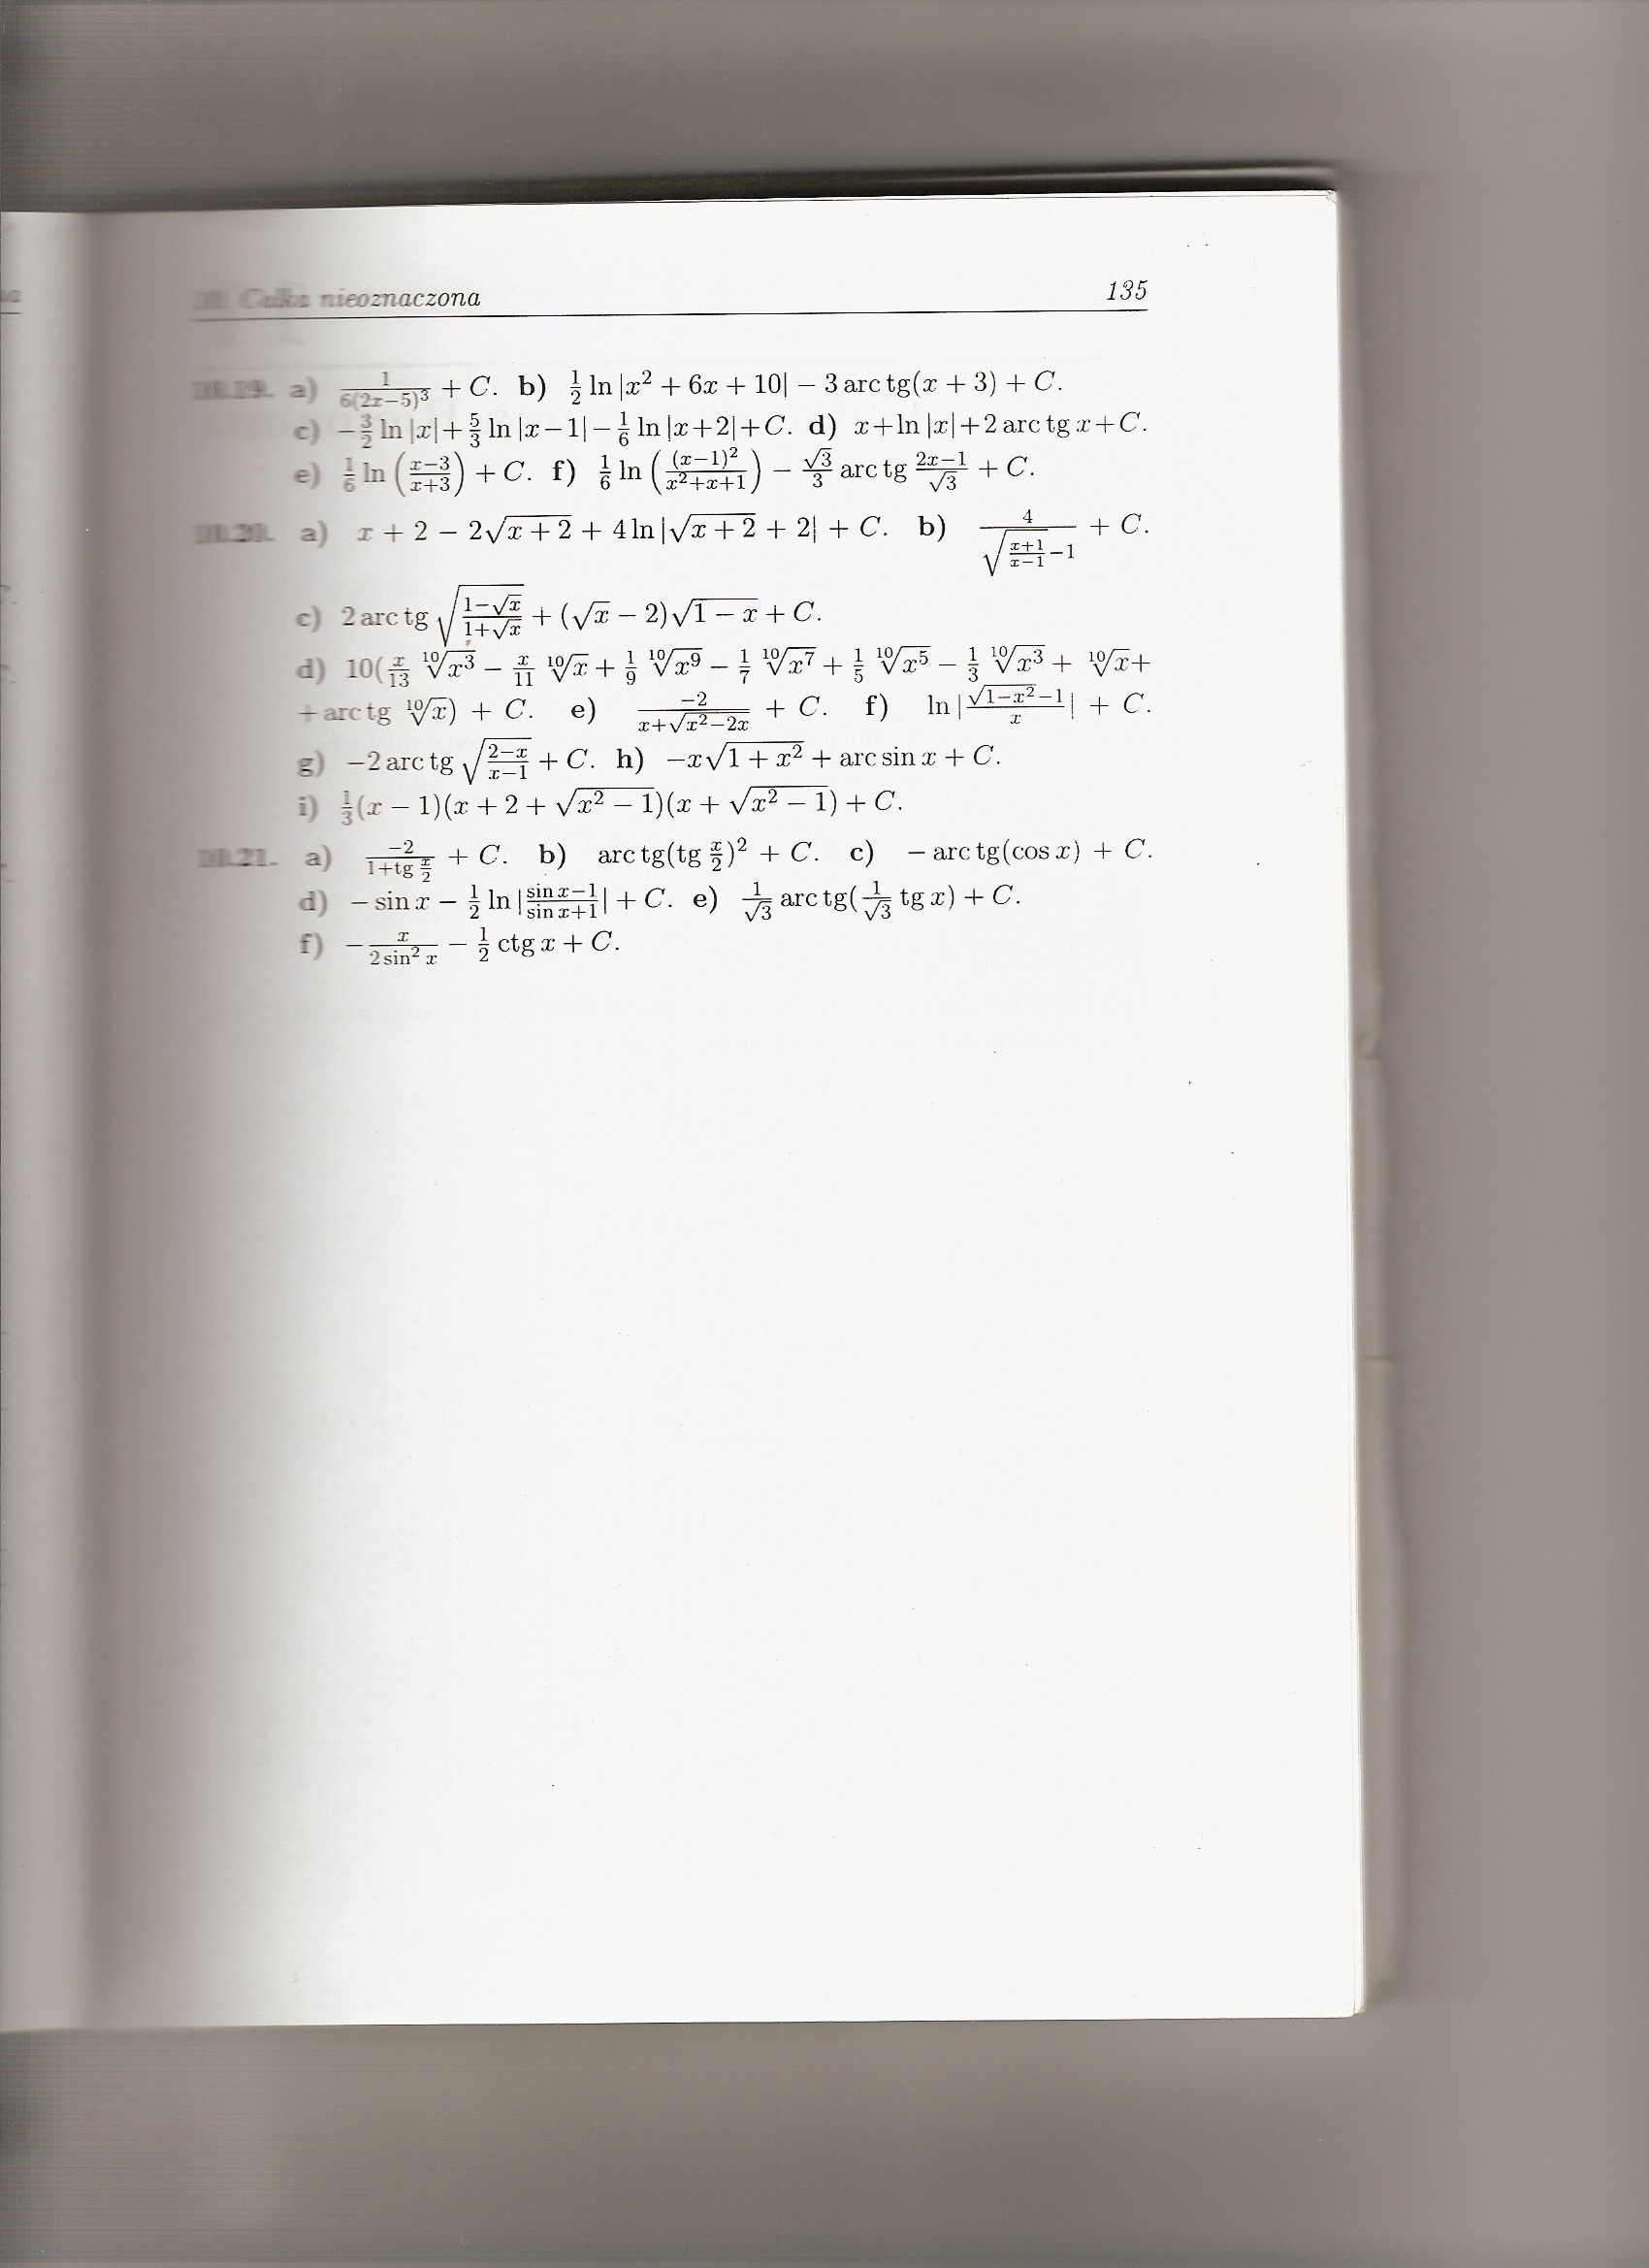 10. Całka nieoznaczona 135
10.19. a) \frac{1}{6(2x-5)^3} + C. b) \frac{1}{2} ln |x^2 + 6x + 10| − 3 arc tg(x + 3) + C.
c) −\frac{3}{2} ln |x| + \frac{5}{3} ln |x−1| − \frac{1}{6} ln |x+2| + C. d) x + ln |x| + 2 arc tg x + C.
e) \frac{1}{6} ln (\frac{x−3}{x+3}) + C. f) \frac{1}{6} ln (\frac{(x−1)^2}{x^2+x+1}) − \frac{\sqrt{3}}{3} arc tg \frac{2x−1}{\sqrt{3}} + C.
10.20. a) x + 2 − 2\sqrt{x+2} + 4 ln |\sqrt{x+2} + 2| + C. b) \frac{4}{\sqrt{\frac{x+1}{x−1}}−1} + C.
c) 2 arc tg \sqrt{\frac{1−\sqrt{x}}{1+\sqrt{x}}} + (\sqrt{x} − 2)\sqrt{1−x} + C.
d) 10(\frac{x}{13} \sqrt[10]{x^3} − \frac{x}{11} \sqrt[10]{x} + \frac{1}{9} \sqrt[10]{x^9} − \frac{1}{7} \sqrt[10]{x^7} + \frac{1}{5} \sqrt[10]{x^5} − \frac{1}{3} \sqrt[10]{x^3} + \sqrt[10]{x}+
+ arc tg \sqrt[10]{x}) + C. e) \frac{−2}{x+\sqrt{x^2−2x}} + C. f) ln |\frac{\sqrt{1−x^2}−1}{x}| + C.
g) −2 arc tg \sqrt{\frac{2−x}{x−1}} + C. h) −x\sqrt{1+x^2} + arc sin x + C.
i) \frac{1}{3}(x − 1)(x + 2 + \sqrt{x^2−1})(x + \sqrt{x^2−1}) + C.
10.21. a) \frac{−2}{1+tg \frac{x}{2}} + C. b) arc tg(tg \frac{x}{2})^2 + C. c) − arc tg(cos x) + C.
d) − sin x − \frac{1}{2} ln |\frac{sin x−1}{sin x+1}| + C. e) \frac{1}{\sqrt{3}} arc tg(\frac{1}{\sqrt{3}} tg x) + C.
f) −\frac{x}{2 sin^2 x} − \frac{1}{2} ctg x + C.